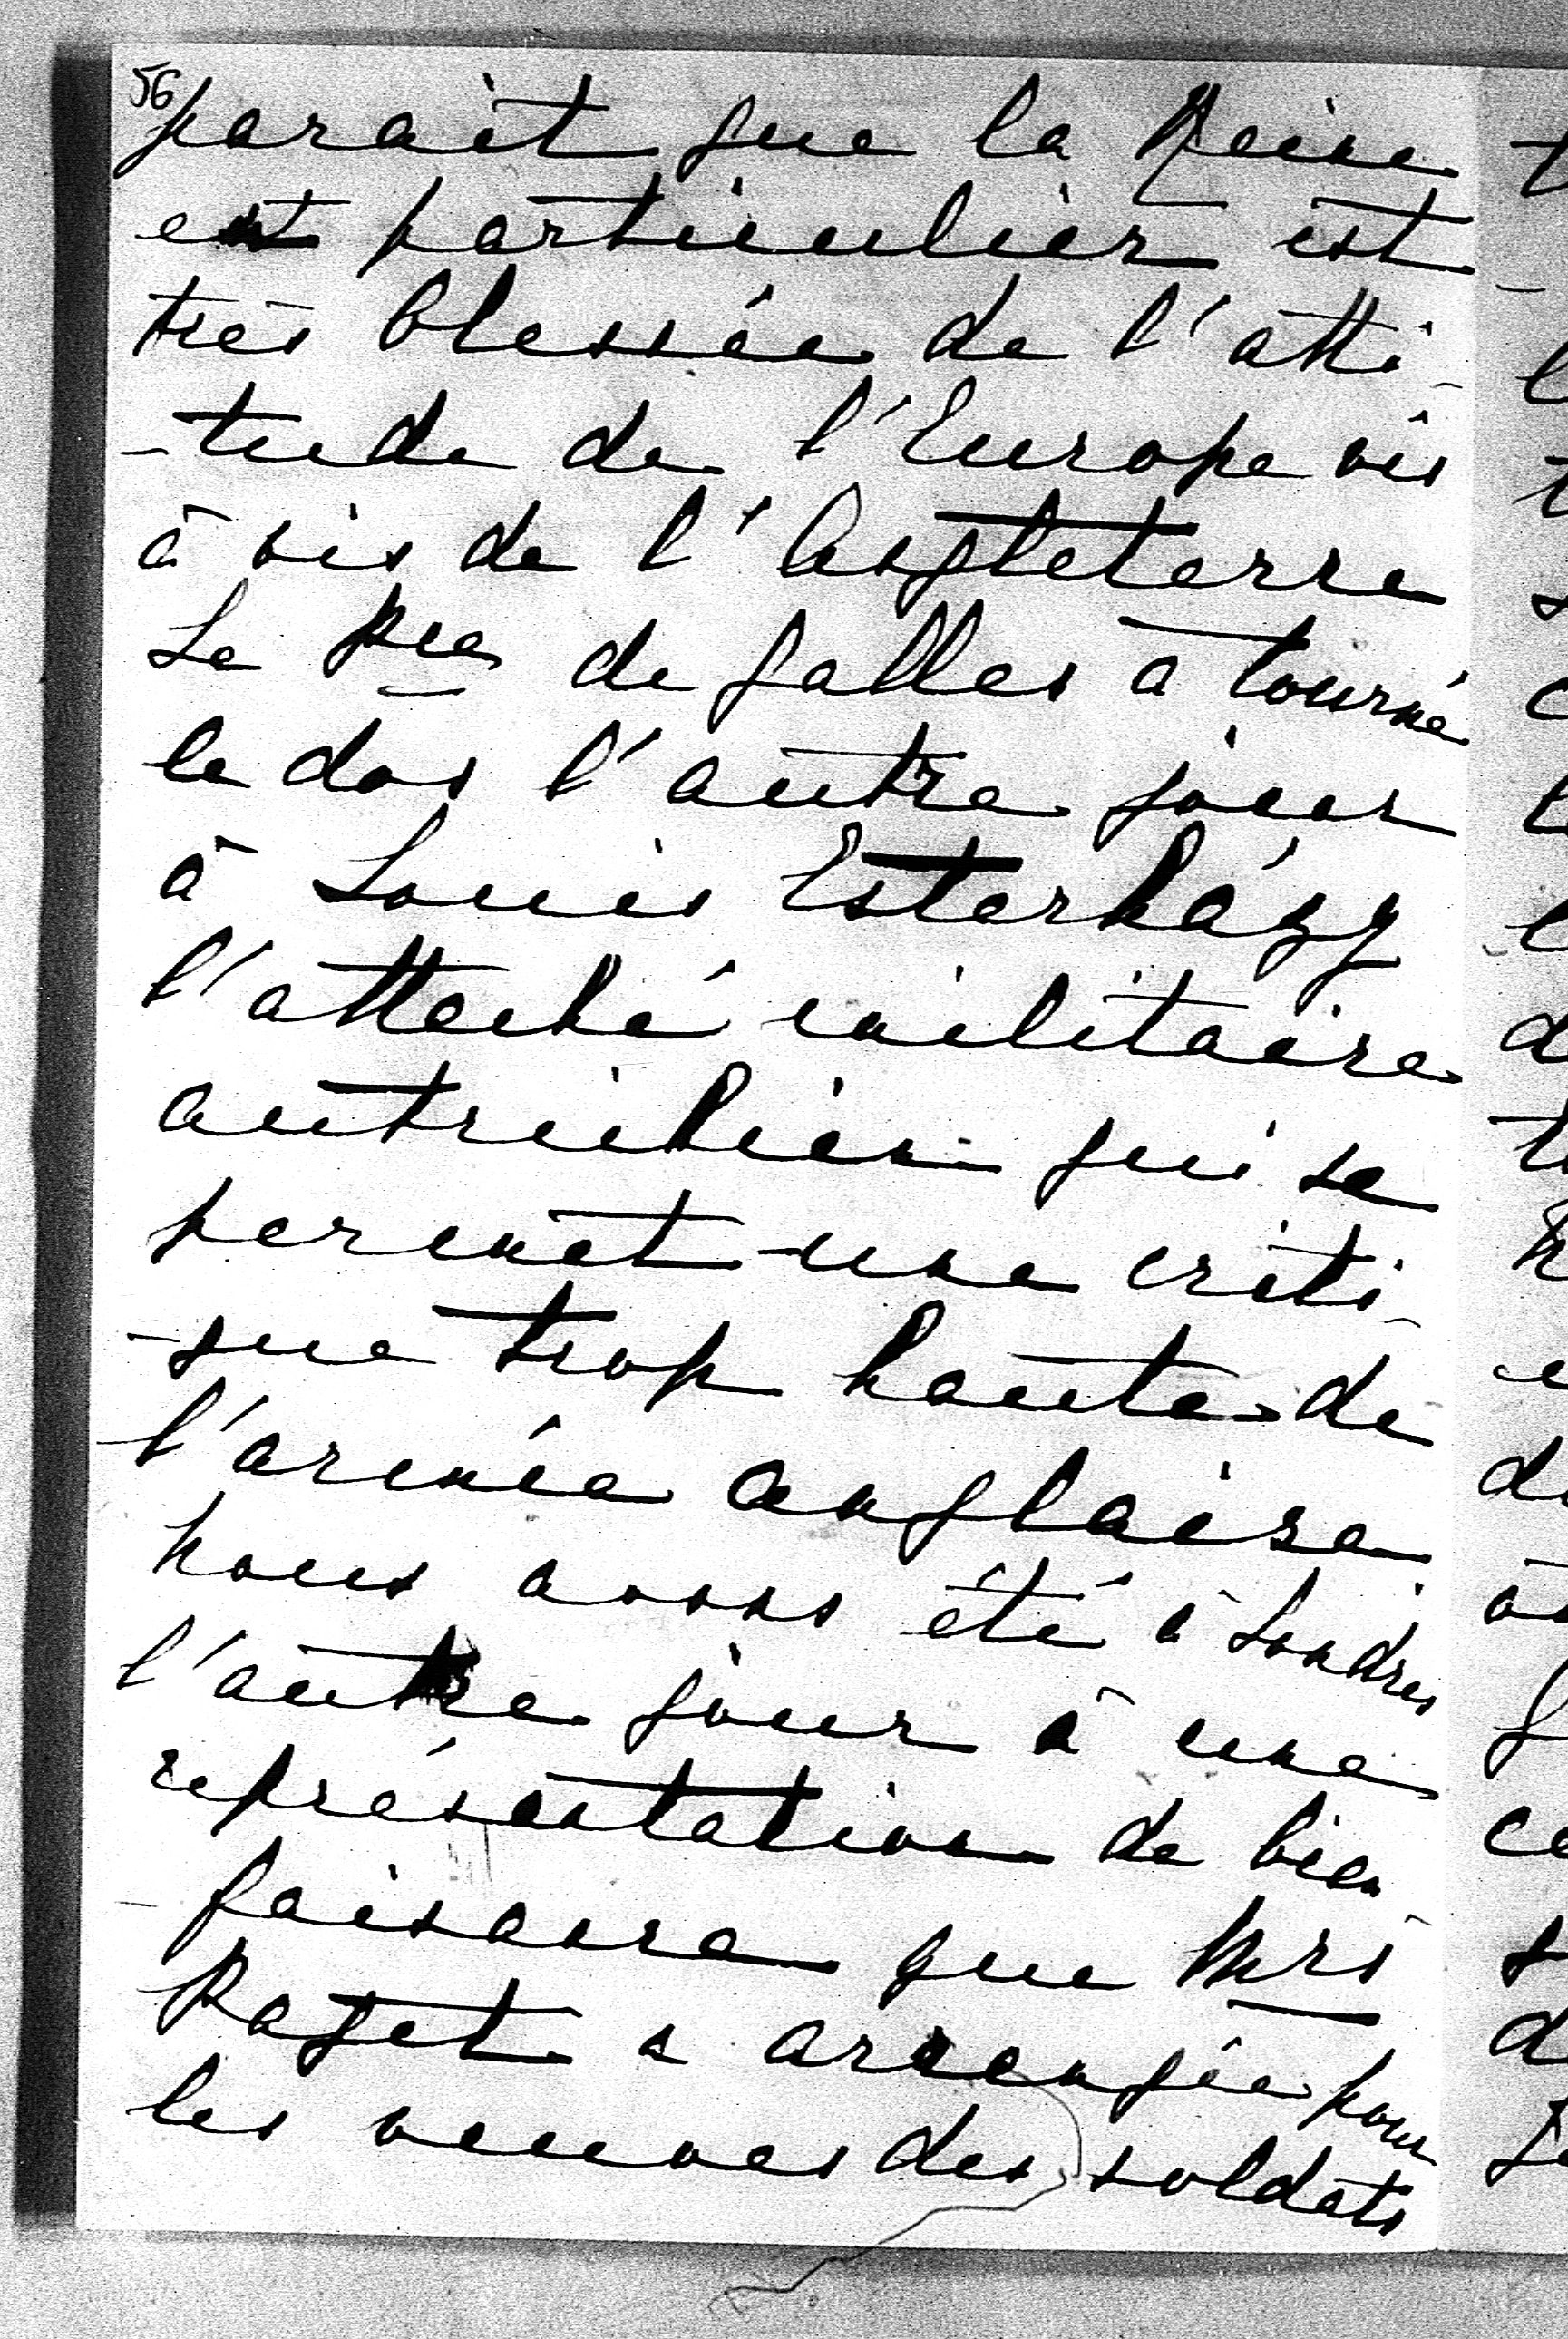 56
parait que la Reine
en particulier est
très blessée de l'atti-
-tude de l'Europe vis
à vis de l'Angleterre
Le Pce de Galles a tourné
le dos l'autre jour
à Louis Esterházy
l'attaché militaire
autrichien qui se
permet une criti-
-que trop haute de
l'armée anglaise
nous avons été à Londres
l'autre jour à une
représentation de bien
-faisance que Mrs
Paget a arrangée pour
les veuves des soldats